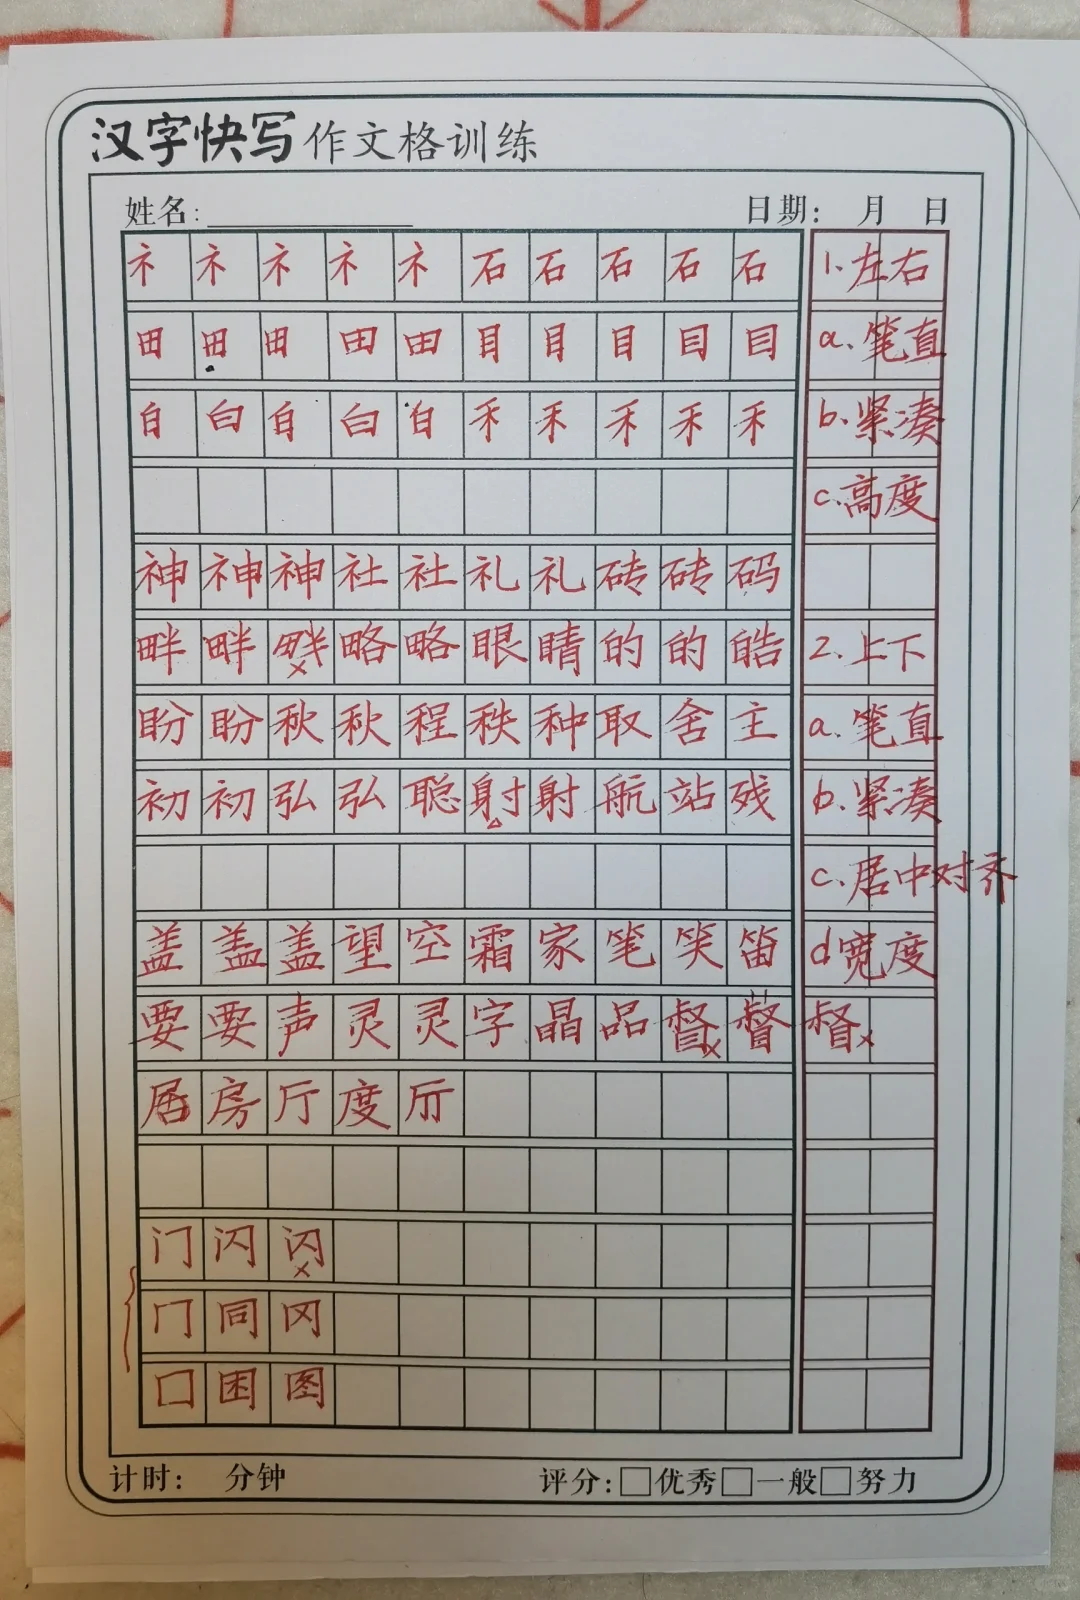 汉字快写作文格训练
姓名: 日期: 月 日
礻 礻 礻 礻 礻 石 石 石 石 石 1.左右
田 田 田 田 田 目 目 目 目 目 a.笔直
白 白 白 白 白 禾 禾 禾 禾 禾 b.紧凑
c.高度
神 神 神 社 社 礼 礼 砖 砖 码
畔 畔 畔 略 略 眼 睛 的 的 皓 2.上下
盼 盼 秋 秋 程 秩 种 取 舍 主 a.笔直
初 初 弘 弘 聪 射 射 航 站 残 b.紧凑
c.居中对齐
盖 盖 盖 望 空 霜 家 笔 笑 笛 d宽度
要 要 声 灵 灵 字 晶 品 督 督 督
居 房 厅 度
门 闪 闪
冂 同 冈
囗 困 图
计时: 分钟 评分:□优秀□一般□努力